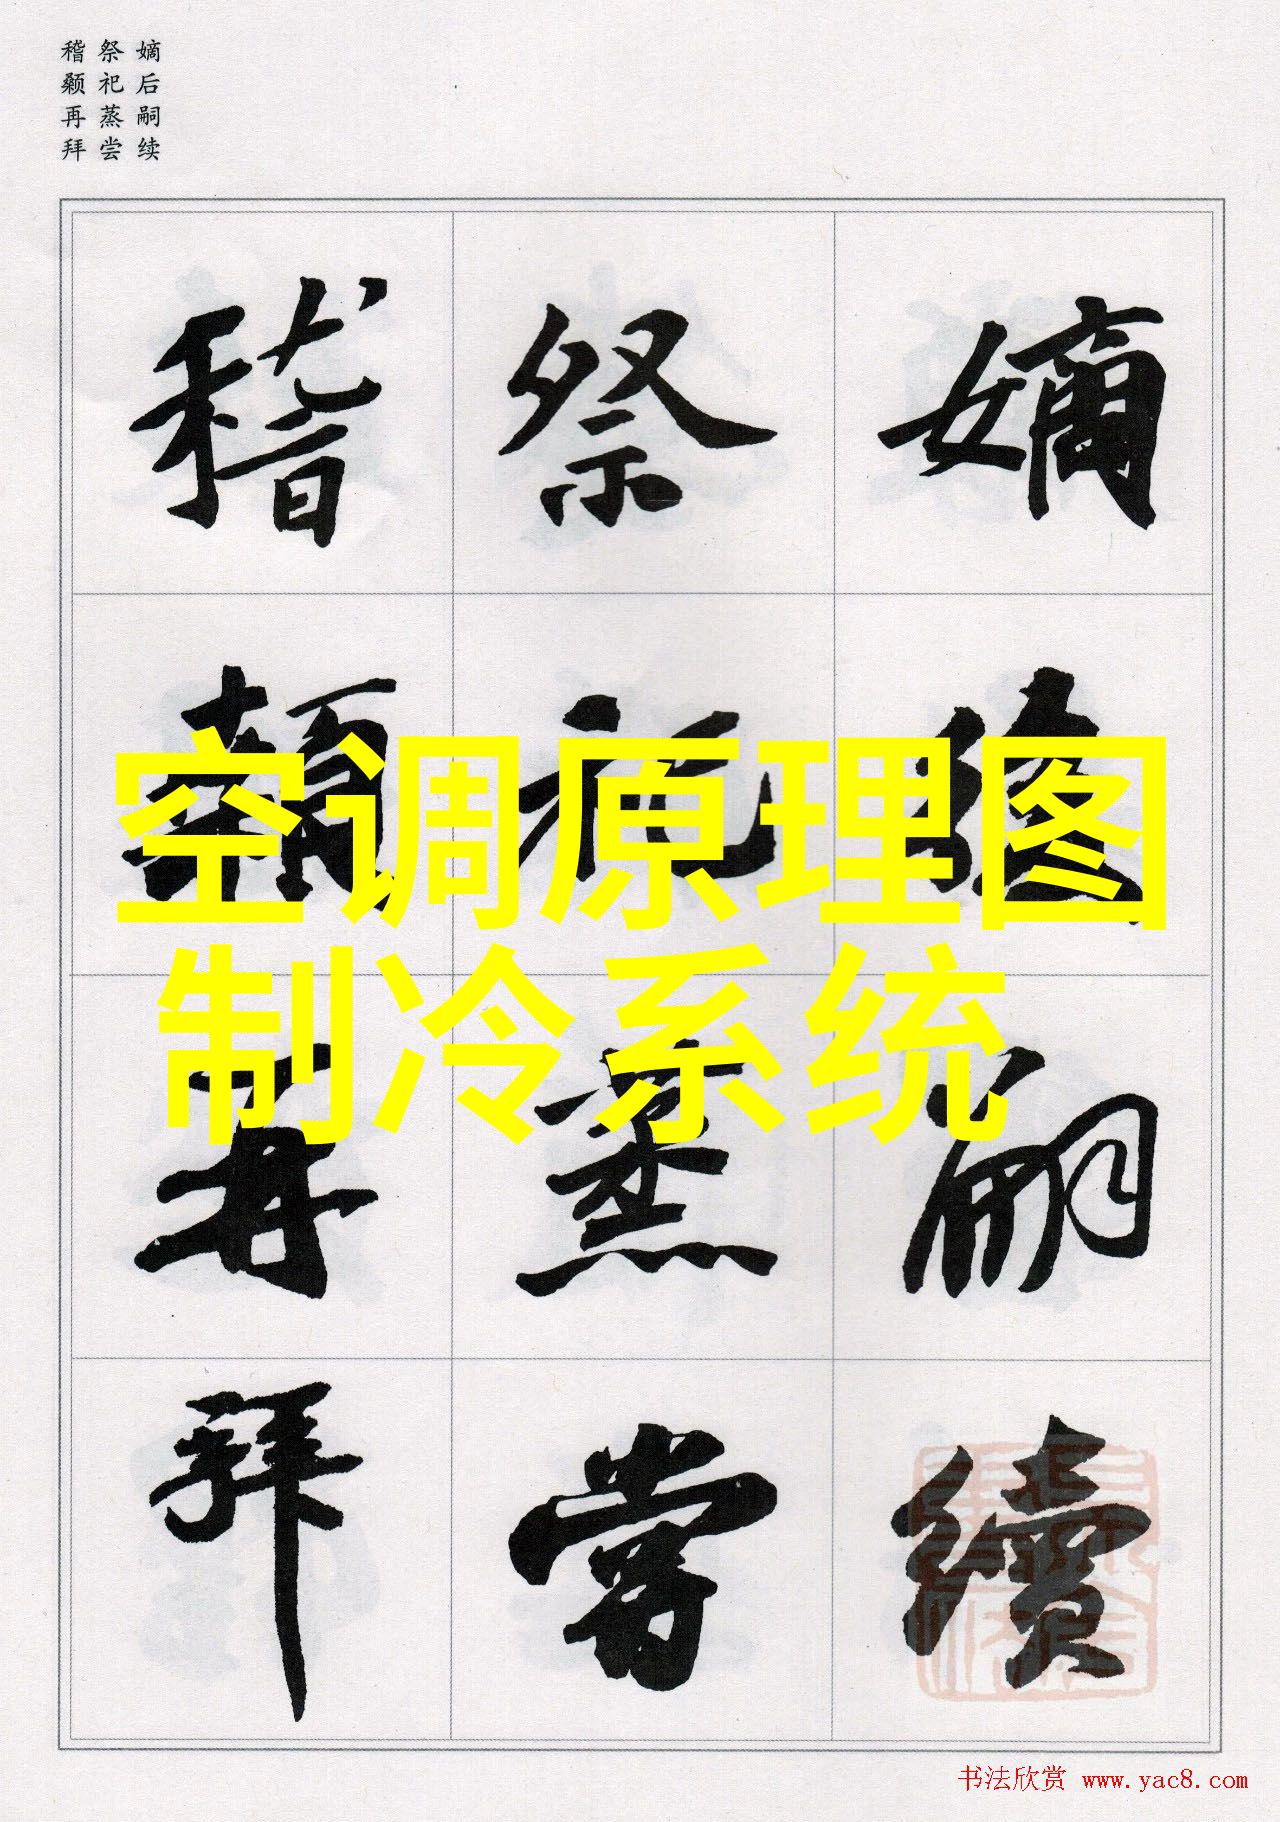 嫡后嗣续
祭祀蒸尝
稽颡再拜
嫡後嗣續
祭祀蒸嘗
稽顙再拜
空调原理图
制冷系统
书法欣赏 www.yac8.com